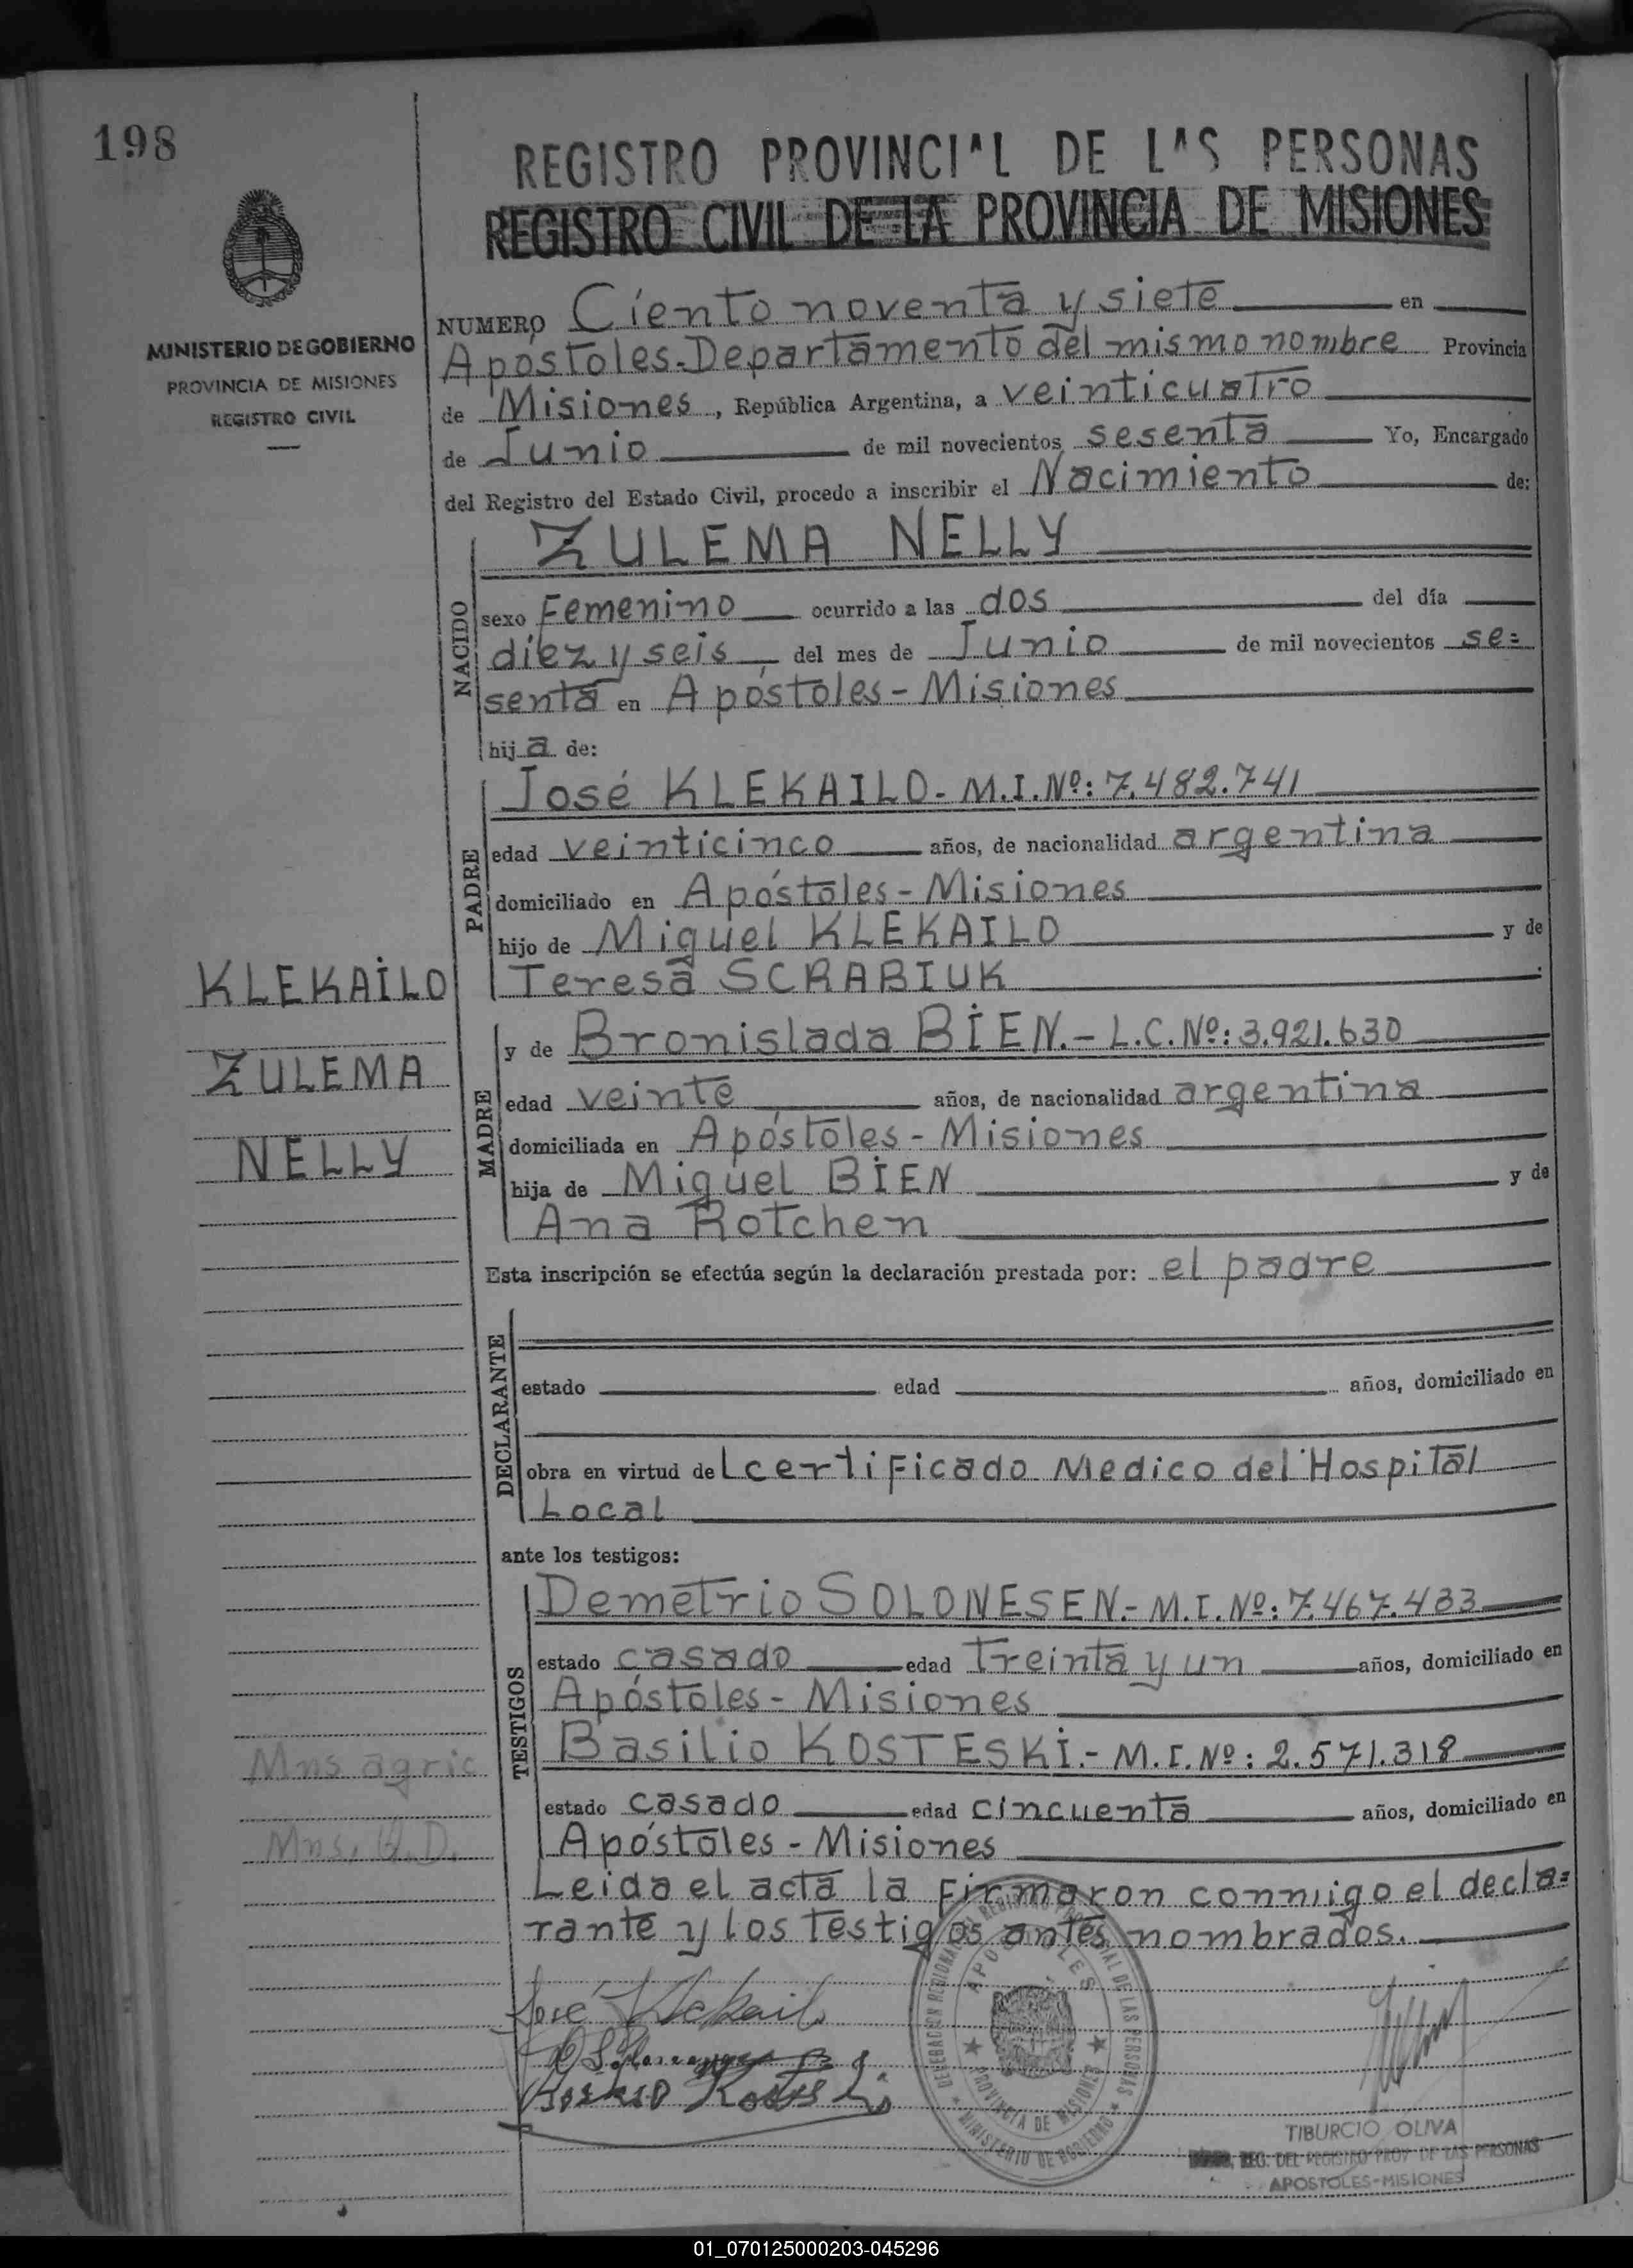 198
REGISTRO PROVINCIAL DE LAS PERSONAS
REGISTRO CIVIL DE LA PROVINCIA DE MISIONES
MINISTERIO DE GOBIERNO
PROVINCIA DE MISIONES
REGISTRO CIVIL
NUMERO Ciento noventa y siete en
Apóstoles-Departamento del mismo nombre Provincia
de Misiones, República Argentina, a veinticuatro
de Junio de mil novecientos sesenta Yo, Encargado
del Registro del Estado Civil, procedo a inscribir el Nacimiento de:
NACIDO
ZULEMA NELLY
sexo Femenino ocurrido a las dos del día
diez y seis del mes de Junio de mil novecientos se=
senta en Apóstoles - Misiones
hija de:
PADRE
José KLEKAILO- M.I.Nº: 7.482.741
edad veinticinco años, de nacionalidad argentina
domiciliado en Apóstoles - Misiones
hijo de Miguel KLEKAILO y de
Teresa SCRABIUK
KLEKAILO
ZULEMA
NELLY
MADRE
y de Bronislada BIEN.- L.C.Nº: 3.921.630
edad veinte años, de nacionalidad argentina
domiciliada en Apóstoles - Misiones
hija de Miguel BIEN y de
Ana Rotchen
Esta inscripción se efectúa según la declaración prestada por: el padre
DECLARANTE
estado edad años, domiciliado en
obra en virtud del certificado Medico del Hospital
Local
ante los testigos:
TESTIGOS
Demetrio SOLONESEN.- M.I.Nº: 7.467.433
estado casado edad Treinta y un años, domiciliado en
Apóstoles - Misiones
Basilio KOSTESKI.- M.I.Nº: 2.571.318
estado casado edad cincuenta años, domiciliado en
Apóstoles - Misiones
Mns agric
Mns.
Leida el acta la firmaron conmigo el decla=
rante y los testigos antes nombrados.
José Klekailo
DELEGACION REGIONAL DEL REGISTRO PROVINCIAL DE LAS PERSONAS
APOSTOLES
PROVINCIA DE MISIONES
MINISTERIO DE GOBIERNO
TIBURCIO OLIVA
REG. DEL REGISTRO PROV DE LAS PERSONAS
APOSTOLES-MISIONES
01_070125000203-045296